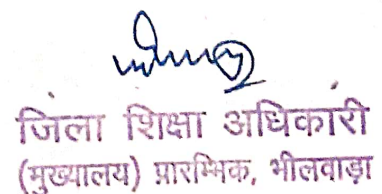 जिला शिक्षा अधिकारी
(मुख्यालय) प्रारम्भिक, भीलवाड़ा